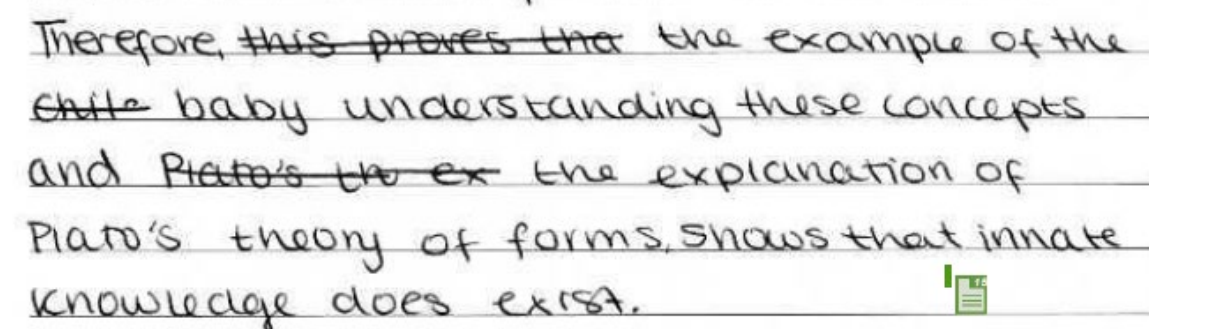 Therefore, this proves tha the example of the
Chile baby understanding these concepts
and Plato's th ex the explanation of
Plato's theory of forms, shows that innate
knowledge does exist.